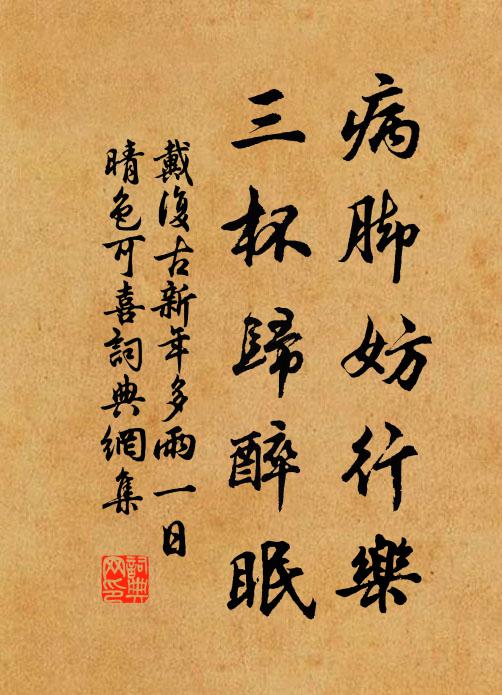 病脚妨行樂
三杯歸醉眠
戴復古新年多雨一日
晴色可喜詞典網集
詞典網印